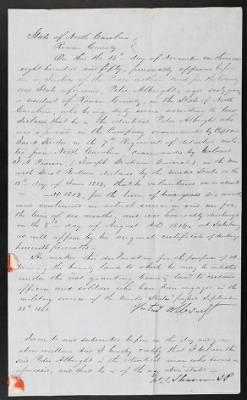 State of North Carolina
Rowan County
On this the 15th day of November one thousand
eight hundred and fifty, personally appeared before
a Justice of the Peace within and for the County
and State aforesaid, Peter Albright, aged
a resident of Rowan County, in the State of North
Carolina, who being duly sworn according to law
declares that he is the identical Peter Albright who
was a private in the Company commanded by Captain
in the 7th Regiment of
North Carolina commanded by Colonel
Pearson, (Joseph Graham General), in the war
with Great Britain declared by the United States on the
18th day of June 1812, that he volunteered on or about
for the term of
and continued in actual service in said war for
the term of six months, and was honorably discharged
on the day of August AD 1814, at Salisbury
as will appear by his original certificate of discharge
herewith presented.
He makes this declaration for the purpose of ob-
taining the bounty land to which he may be entitled
under the "act granting bounty land to certain
officers and soldiers who have been engaged in the
military service of the United States" passed September
28th 1850.
Sworn to and subscribed before me the day and year
above written. And I hereby certify that I believe the
said Peter Albright to be the identical man who served as
aforesaid, and that he is of the age above stated.